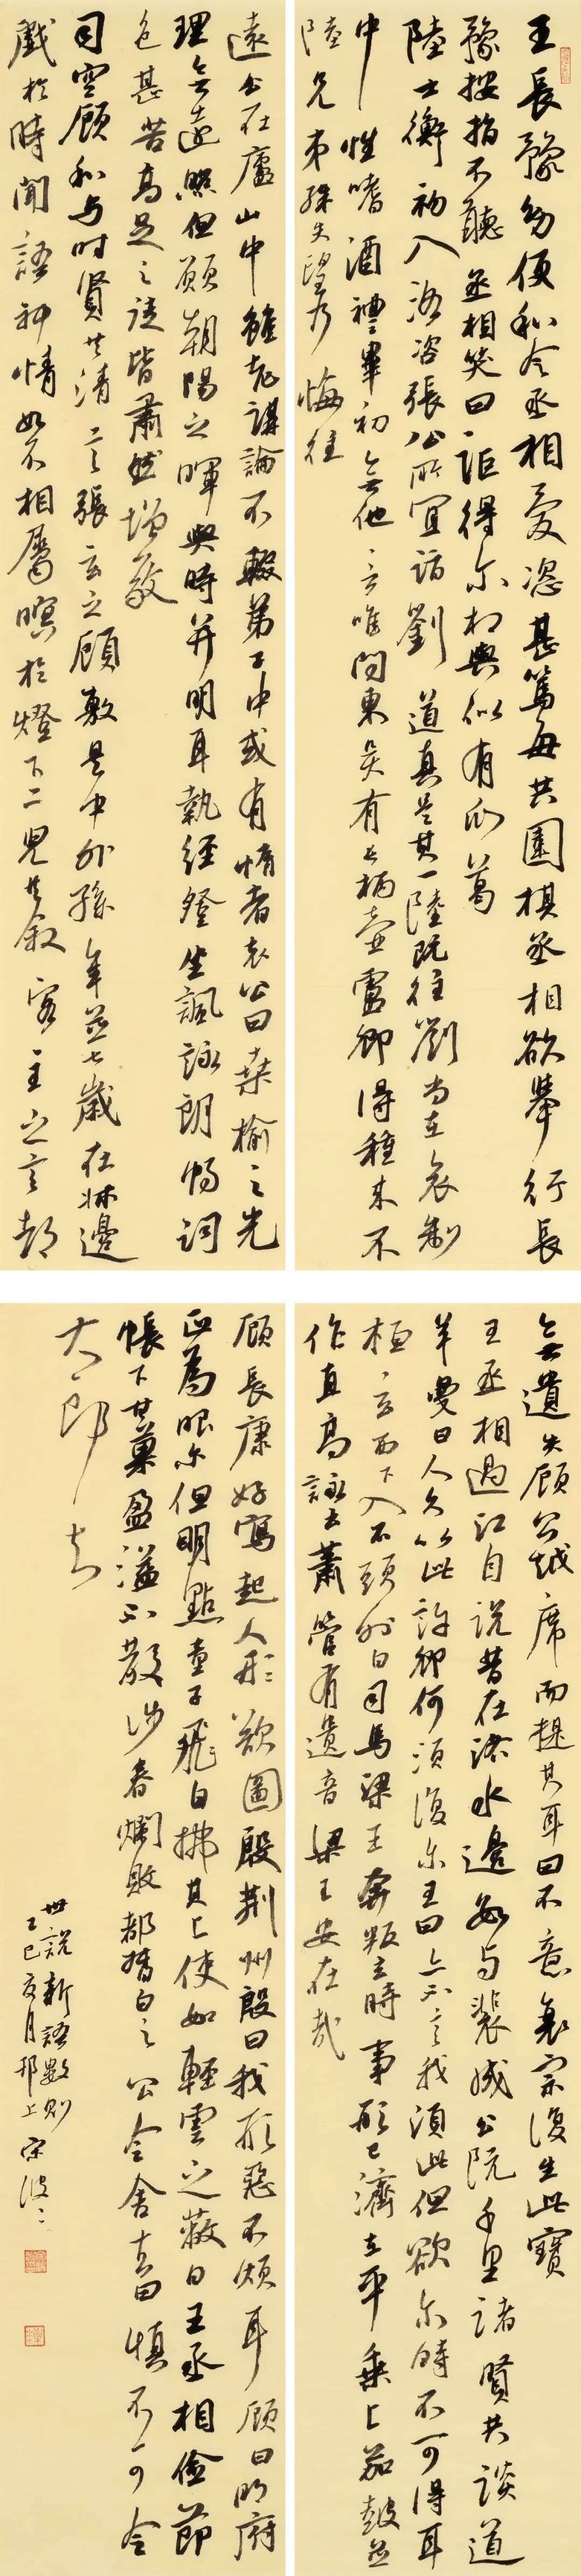 王長豫幼便和令丞相愛恣甚篤每共圍棋丞相欲舉行長
豫按指不聽丞相笑曰詎得尔相與似有瓜葛
陸士衡初入洛咨張公所宜詣劉道真是其一陸既往劉尚在哀制
中性嗜酒禮畢初無他言唯問東吳有長柄壺盧卿得種來不
陸兄弟殊失望乃悔往
遠公在廬山中雖老講論不輟弟子中或有惰者遠公曰桑榆之光
理無遠照但願朝陽之暉與時并明耳執經登坐諷詠朗暢詞
色甚苦高足之徒皆肅然增敬
司空顧和与时賢共清言張玄之顧敷是中外孫年並七歲在牀邊
戲於時聞語神情如不相屬瞑於燈下二兒共敘客主之言都
無遺失顧公越席而提其耳曰不意衰宗復生此寶
王丞相過江自說昔在洛水邊數与裴成公阮千里諸賢共談道
羊曼曰人久以此許卿何須復尔王曰亦不言我須此但欲尔時不可得耳
桓玄西下入石頭外白司馬梁王奔叛玄時事形已濟在平乘上笳鼓並
作直高詠云蕭管有遺音梁王安在哉
顧長康好寫起人形欲圖殷荆州殷曰我形惡不煩耳顧曰明府
正為眼尔但明點童子飛白拂其上使如輕雲之蔽日王丞相儉節
帳下甘菓盈溢不散涉春爛敗都督白之公令舍去曰慎不可令
大郎知
世說新語數則
乙巳亥月邗上宋波